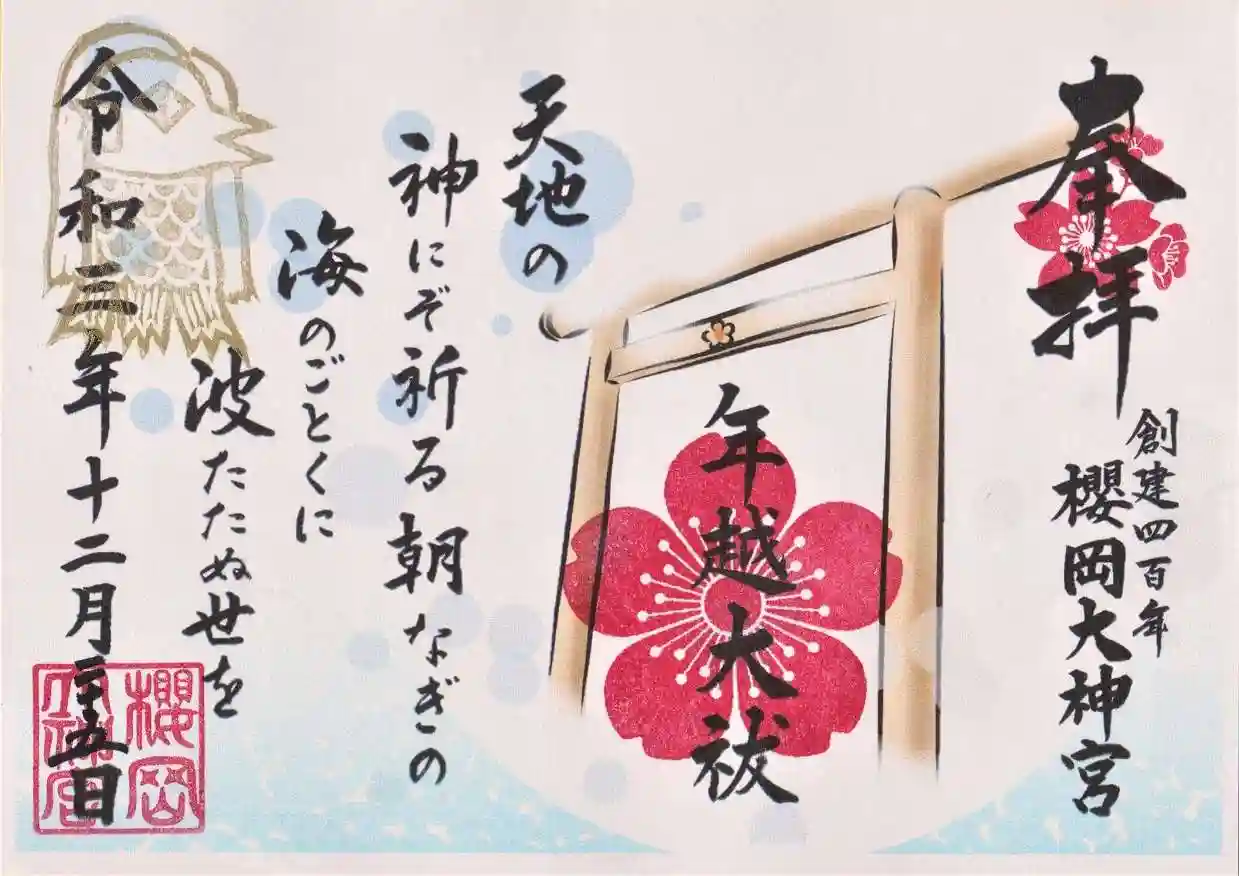 奉拝
創建四百年
櫻岡大神宮
年越大祓
天地の
神にぞ祈る朝なぎの
海のごとくに
波たたぬ世を
令和三年十二月二十五日
櫻岡
大神宮